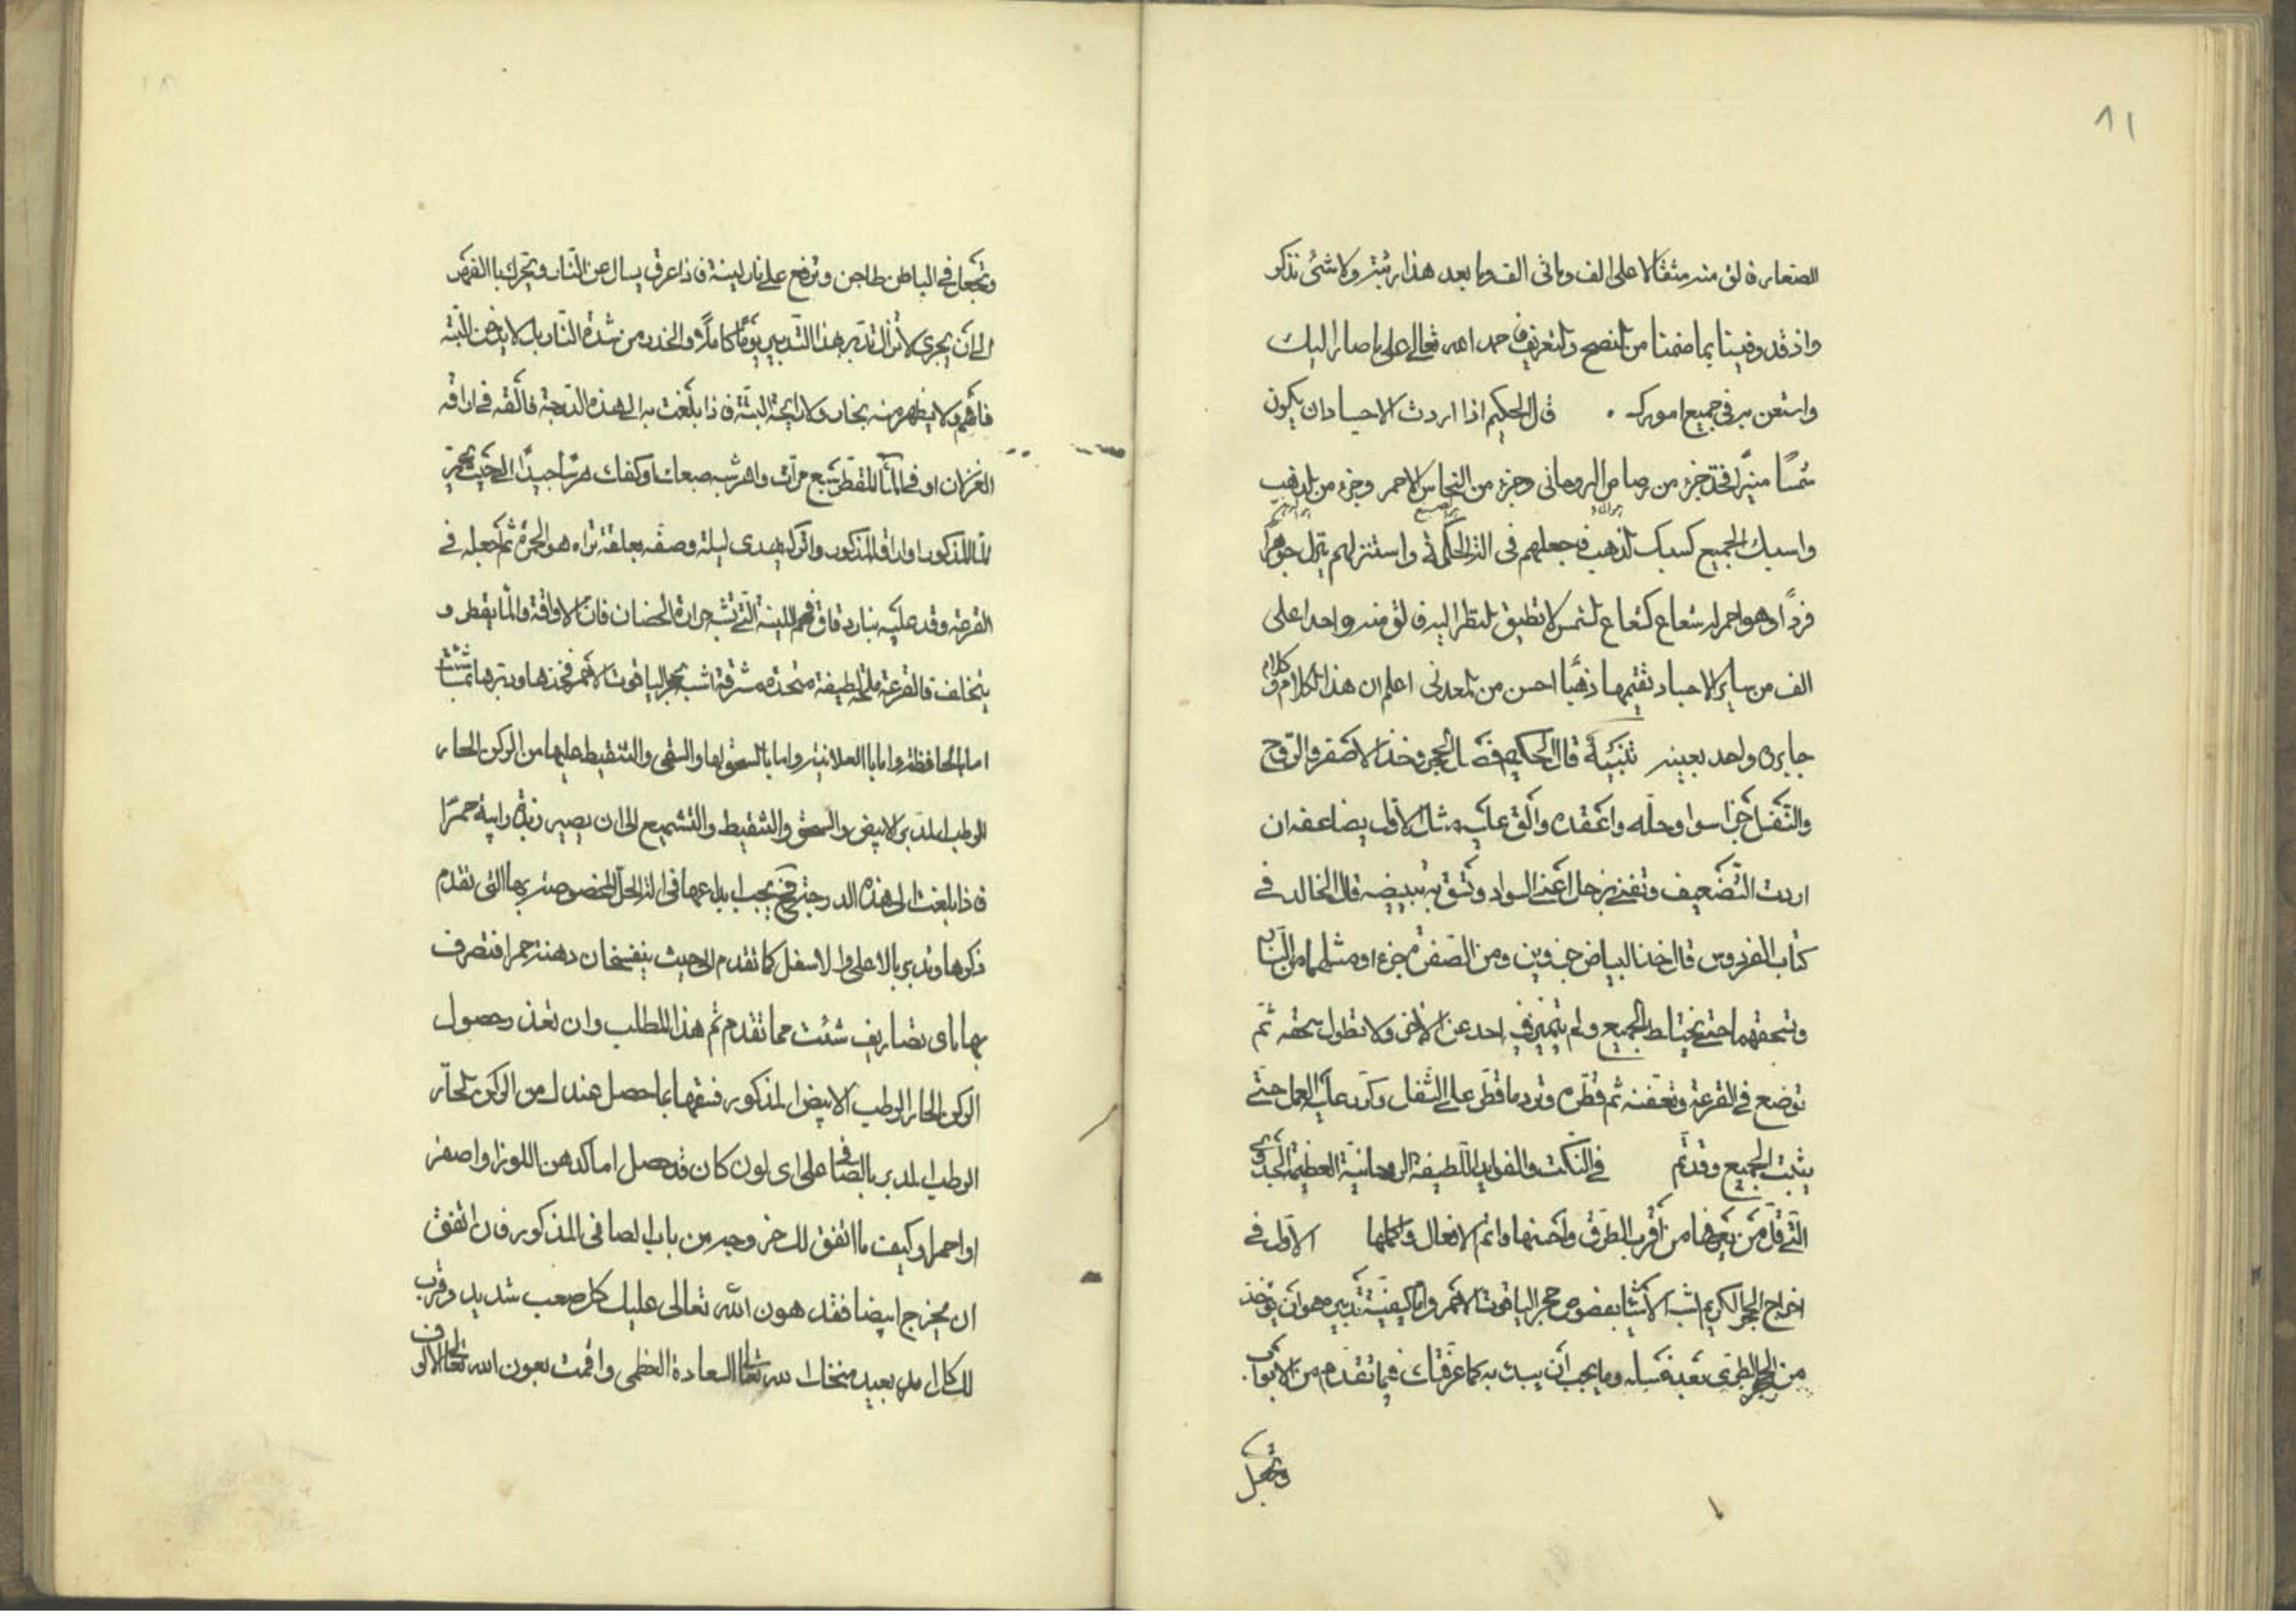 ٨١
الصنعا فالق منه مثقالا على الف وماتى الف وما بعد هذا رتبة ولا شئ نذكر
واذ قد وفينا بما ضمنا من النصح والتعريف حمد الله تعالى على ما صار اليك
واستعن به فى جميع امورك . قال الحكيم اذا اردت الاجساد ان يكون
شمسًا منيرًا فخذ جزء من رصاص الرومانى وجزء من النحاس الاحمر وجزء من الذهب
واسبك الجميع كسبك الذهب فاجعلهم فى الة الحكمة واستنزلهم ينزل جوهرًا
فردًا وهو احمر له شعاع كشعاع الشمس لا تطيق النظر اليه فالق منه واحدا على
الف من ساير الاجساد تقيمها ذهبًا احسن من المعدنى اعلم ان هذا الكلام وكلام
جابر واحد بعينه تنبيه قال الحكيم فصل الحجر وخذ الاصفر والروح
والثفل جزا سوا وحله واعقده والق عليه مثل الاول يضاعف ان
اردت التضعيف وتغنى زحل اعنى السواد وتثق به تبييضه قال الخالد فى
كتاب الفردوس قال خذ البياض جزوين ومن الصفرة جزء او مثلهما من
وتسحقهما حتى يختلط الجميع ولم يتميز احد عن الاخر ولا تطول سحقه ثم
توضع فى القرعة وتعفنه ثم قطره وترد ما قطر على الثفل وكرر عليه العمل حتى
يثبت الجميع وقد تم فى النكت والفوايد اللطيفة الروحانية العظيمة
التى قل من يعرفها من أقرب الطرق واحسنها واتم الافعال واكملها الاول فى
اخراج الحجر الكريم اشبه الاشيا بفصوص حجر الياقوت الاحمر واما كيفية تدبيره هو ان يؤخذ
من الحجر الطرى بعد غسله وما يجب أن يبدء به كما عرفتك فيما تقدم من الابواب
وتجعل
وتجعل فى الباطن طاجن وترفع على نار لينة فاذا عرق يسال عن النار وتحرك بالفهر
الى ان يجرى لا تزال تدبر بهذا التدبير يومًا كاملاً والحذر من شدة النار بل لا يدخن البتة
فافهم ولا يظهر منه بخار ولا رايحة البتة فاذا بلغت به الى هذه الدرجة فالقه فى اراقه
الغزلان او فى الماء المقطر سبع مرات واهرسه بصبعك او كفك هرسًا جيدًا الى حيث
الما المذكور او اراق المذكور واتركه يهدى ليلة وصفه بعلقة تراه هو الحمرة ثم اجعله فى
القرعة وقد عليه بنار دقاق فحم اللينة التى تشبه حرارة الحضان فان الاراقة والما يقطر و
يتخلف فى القرعة ملحة لطيفة متحدة مشرقة اشبه بحجر الياقوت الاحمر فخذها ودبرها بما شئت
اما بالحافظة واما بالعلانية واما بالسحق لها والسقى والتنقيط عليها من الركن الحار
الرطب المدبر الابيض والسحق والتنقيط والتشميع الى ان يصير زبدة رايبة حمرًا
فاذا بلغت الى هذه الدرجة فح يجب ايداعها فى الة الحل المخصوصة بها التى تقدم
ذكرها وتدبر بالاعلى والاسفل كما تقدم الى حيث ينفسخان دهنة حمرا فتصرف
بها باى تصاريف شئت مما تقدم ثم هذا المطلب وان تعذر حصول
الركن الحار الرطب الابيض المذكور فسقها بما حصل عندك من الركن الحار
الرطب المدبر بالصافى على اى لون كان قد حصل اما كدهن اللوز او اصفر
او احمر او كيف ما اتفق لك خروجه من باب الصافى المذكور فان اتفق
ان يخرج ابيضا فقد هون الله تعالى عليك كل صعب شديد وقرب
لك كل امر بعيد منحك الله تعالى السعادة العظمى واقمت بعون الله تعالى الالوف